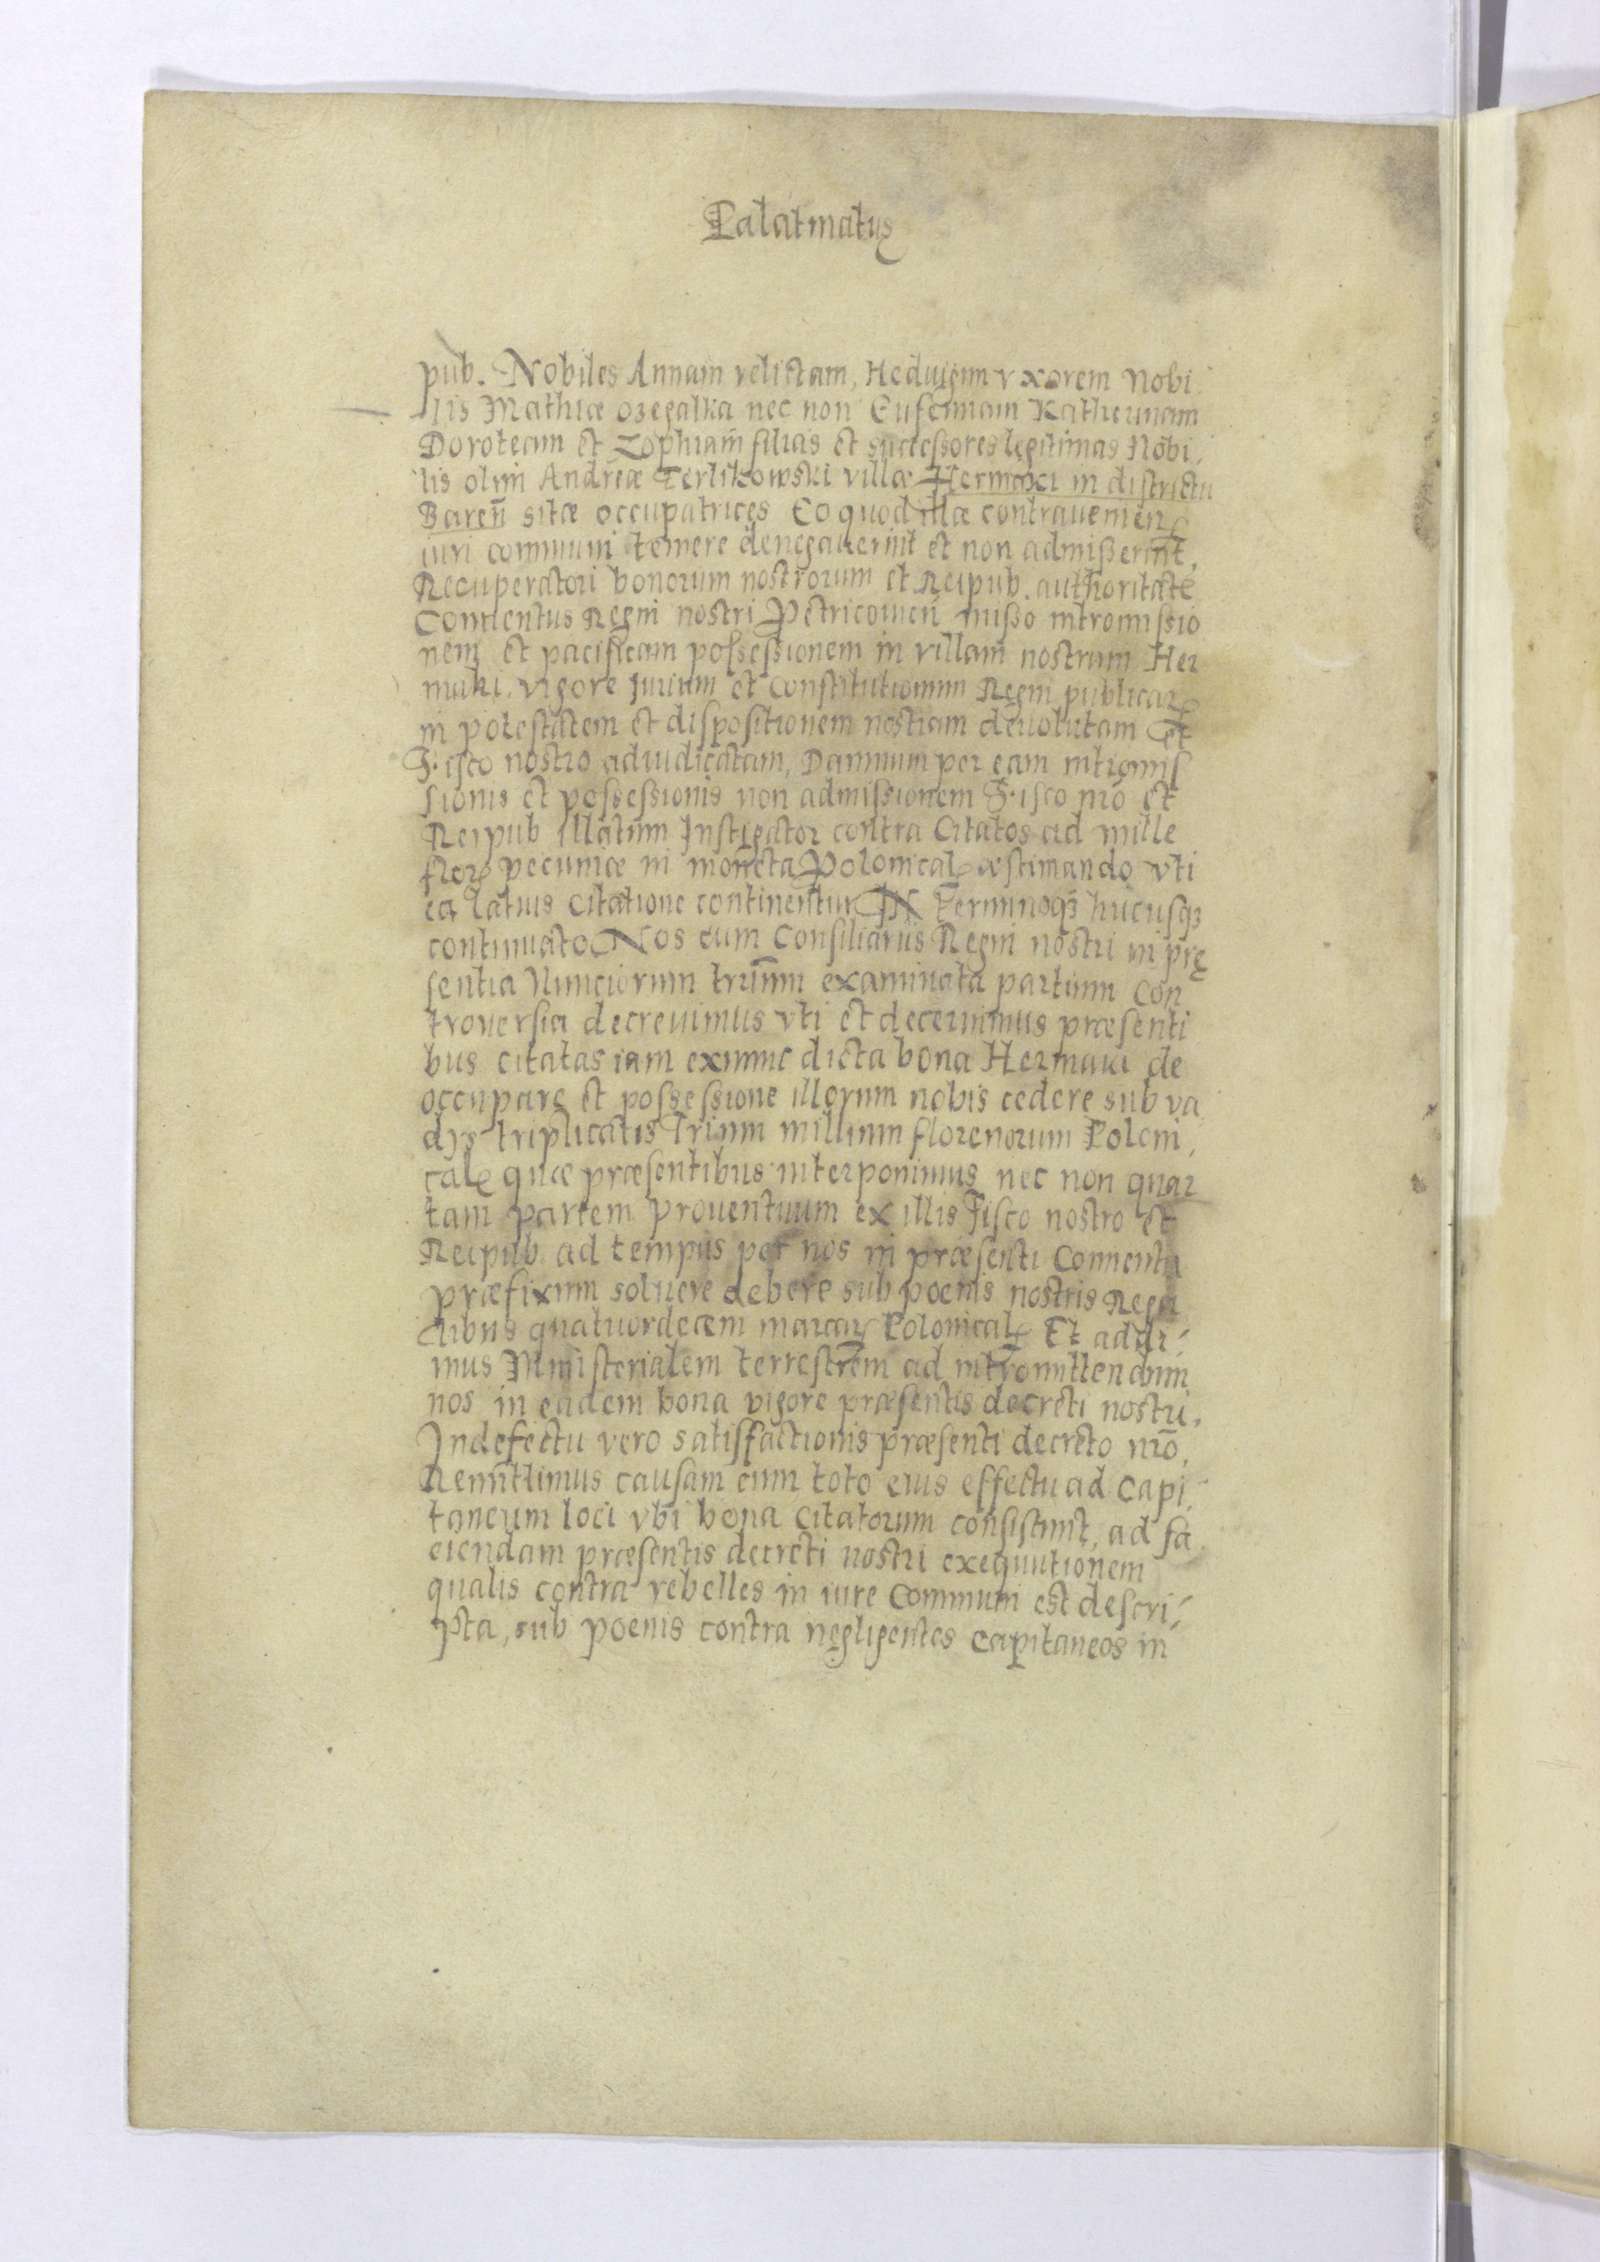 Palatinatus
pub. Nobiles Annam relictam, Heduigim vxorem Nobi
lis Mathiæ ozegalka nec non Eufemiam Katherinam
Doroteam et Zophiam filias et successores legitimas Nobi,
lis olim Andreæ Terlikowski villæ Hermaki in districtu
Bareñ sitæ occupatrices Eo quod illæ contrauenien
iuri communi temere denegauerint et non admißerint,
Recuperatori bonorum nostrorum et Reipub. authoritate
Conuentus Regni nostri Petricouień mißo intromissio
nem et pacificam possessionem in villam nostram Her
maki, vigore Jurium et Constitutionum Regni publicar
in potestatem et dispositionem nostram deuolutam et
Fisco nostro adiudicatam, Damnum per eam intromis
sionis et possessionis non admissionem Fisco nrõ et
Reipub illatum Instigator contra Citatos ad mille
flor pecuniæ in moneta Polonical æstimando vti
ea latius citatione continentur IN Terminoq3 hucusq3
continuato Nos cum Consiliariis Regni nostri in prę
sentia Nunciorum trium examinata partium Con
trouersia decreuimus vti et decernimus præsenti
bus citatas iam exnunc dicta bona Hermaki de
occupare et possessione illorum nobis cedere sub va
dys triplicatis Trium millium florenorum Poloni,
cal quæ præsentibus interponimus nec non quar
tam partem prouentuum ex illis Fisco nostro et
Reipub ad tempus per nos in præsenti Conuentu
præfixum soluere debere sub poenis nostris Rega
libus quatuordecem marcar Polonical Et addi-
mus Ministerialem terrestrem ad intromittendum
nos in eadem bona vigore præsentis decreti nostri,
Indefectu vero satisfactionis præsenti decreto nrõ,
Remittimus causam cum toto eius effectu ad Capi,
taneum loci vbi bona Citatorum consistunt, ad fa
ciendam præsentis decreti nostri exequutionem
qualis contra rebelles in iure Communi est descri-
pta, sub poenis contra negligentes Capitaneos in